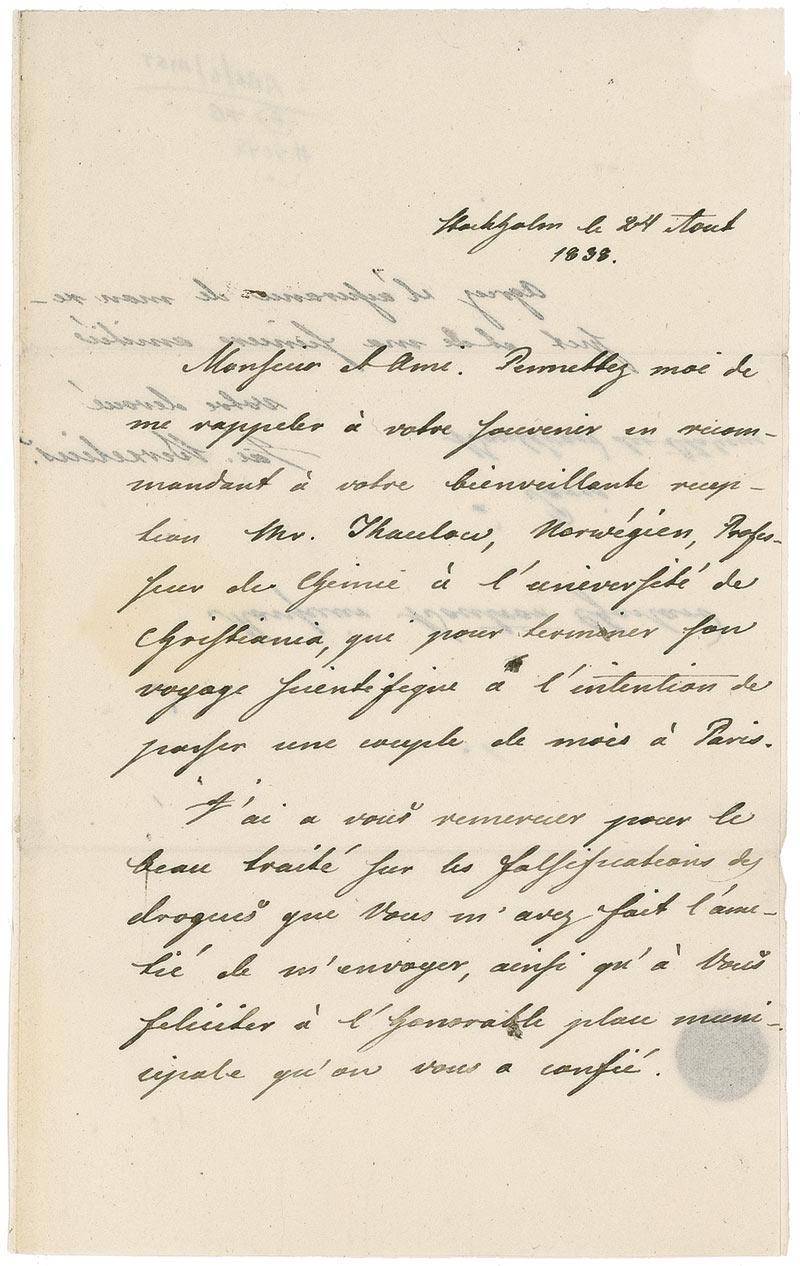 Stockholm le 24 Aout
1838.
Monsieur et Ami. Permettez moi de
me rappeler à votre souvenir en recom-
mandant à votre bienveillante recep-
tion Mr. Thaulow, Norwégien, Profes-
seur de Chimie à l'université de
Christiania, qui pour terminer son
voyage scientifique a l'intention de
passer une couple de mois à Paris.
J'ai a vous remercier pour le
beau traité sur les falsifications des
drogues que Vous m'avez fait l'ami-
tié de m'envoyer, ainsi qu'à Vous
feliciter à l'honorable place muni-
cipale qu'on vous a confié.